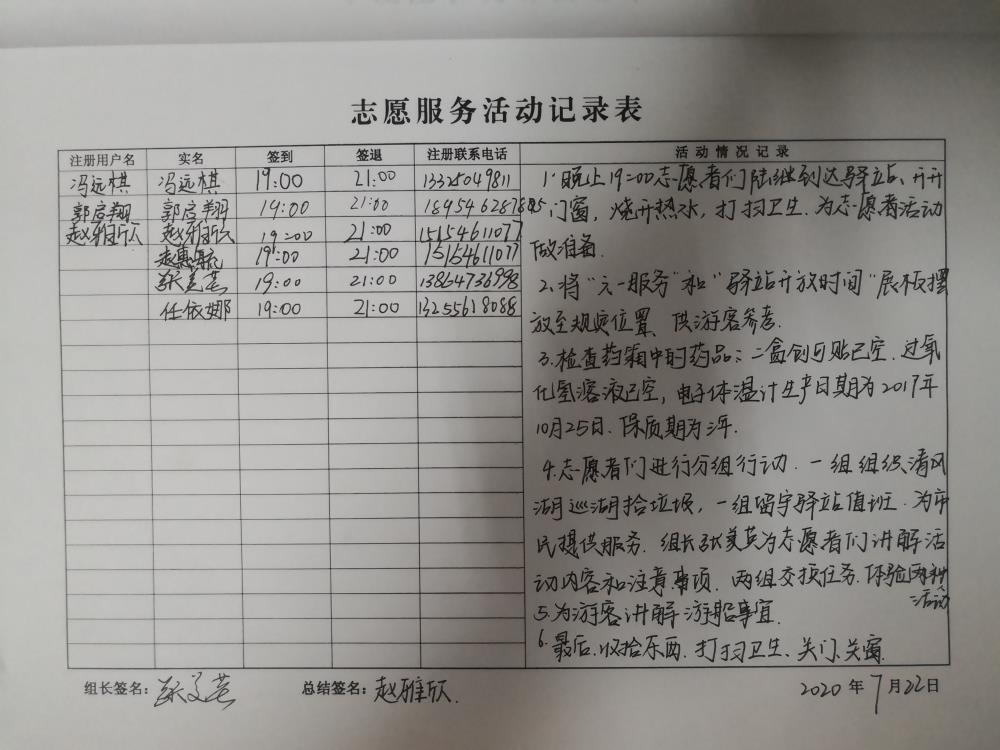 志愿服务活动记录表
注册用户名 实名 签到 签退 注册联系电话 活动情况记录
冯远棋 冯远棋 19:00 21:00 13325049811
郭启翔 郭启翔 19:00 21:00 18954628785
赵雅欣 赵雅欣 19:00 21:00 15154611077
赵惠航 19:00 21:00 15154611077
张美英 19:00 21:00 13864736998
任依娜 19:00 21:00 13255618088
1.晚上19:00志愿者们陆继到达驿站、开开
门窗，烧开热水，打扫卫生.为志愿者活动
做准备.
2.将“六一服务”和“驿站开放时间”展板摆
放至规定位置、供游客参考.
3.检查药箱中的药品：二盒创可贴已空.过氧
化氢溶液已空，电子体温计生产日期为2017年
10月25日.保质期为3年.
4.志愿者们进行分组行动.一组组织清风
湖巡湖拾垃圾，一组留守驿站值班.为市
民提供服务.组长张美英为志愿者们讲解活
动内容和注意事项.两组交换任务.体验两种
活动
5.为游客讲解游船事宜.
6.最后.收拾东西.打扫卫生、关门、关窗.
组长签名：张美英 总结签名：赵雅欣. 2020年7月22日